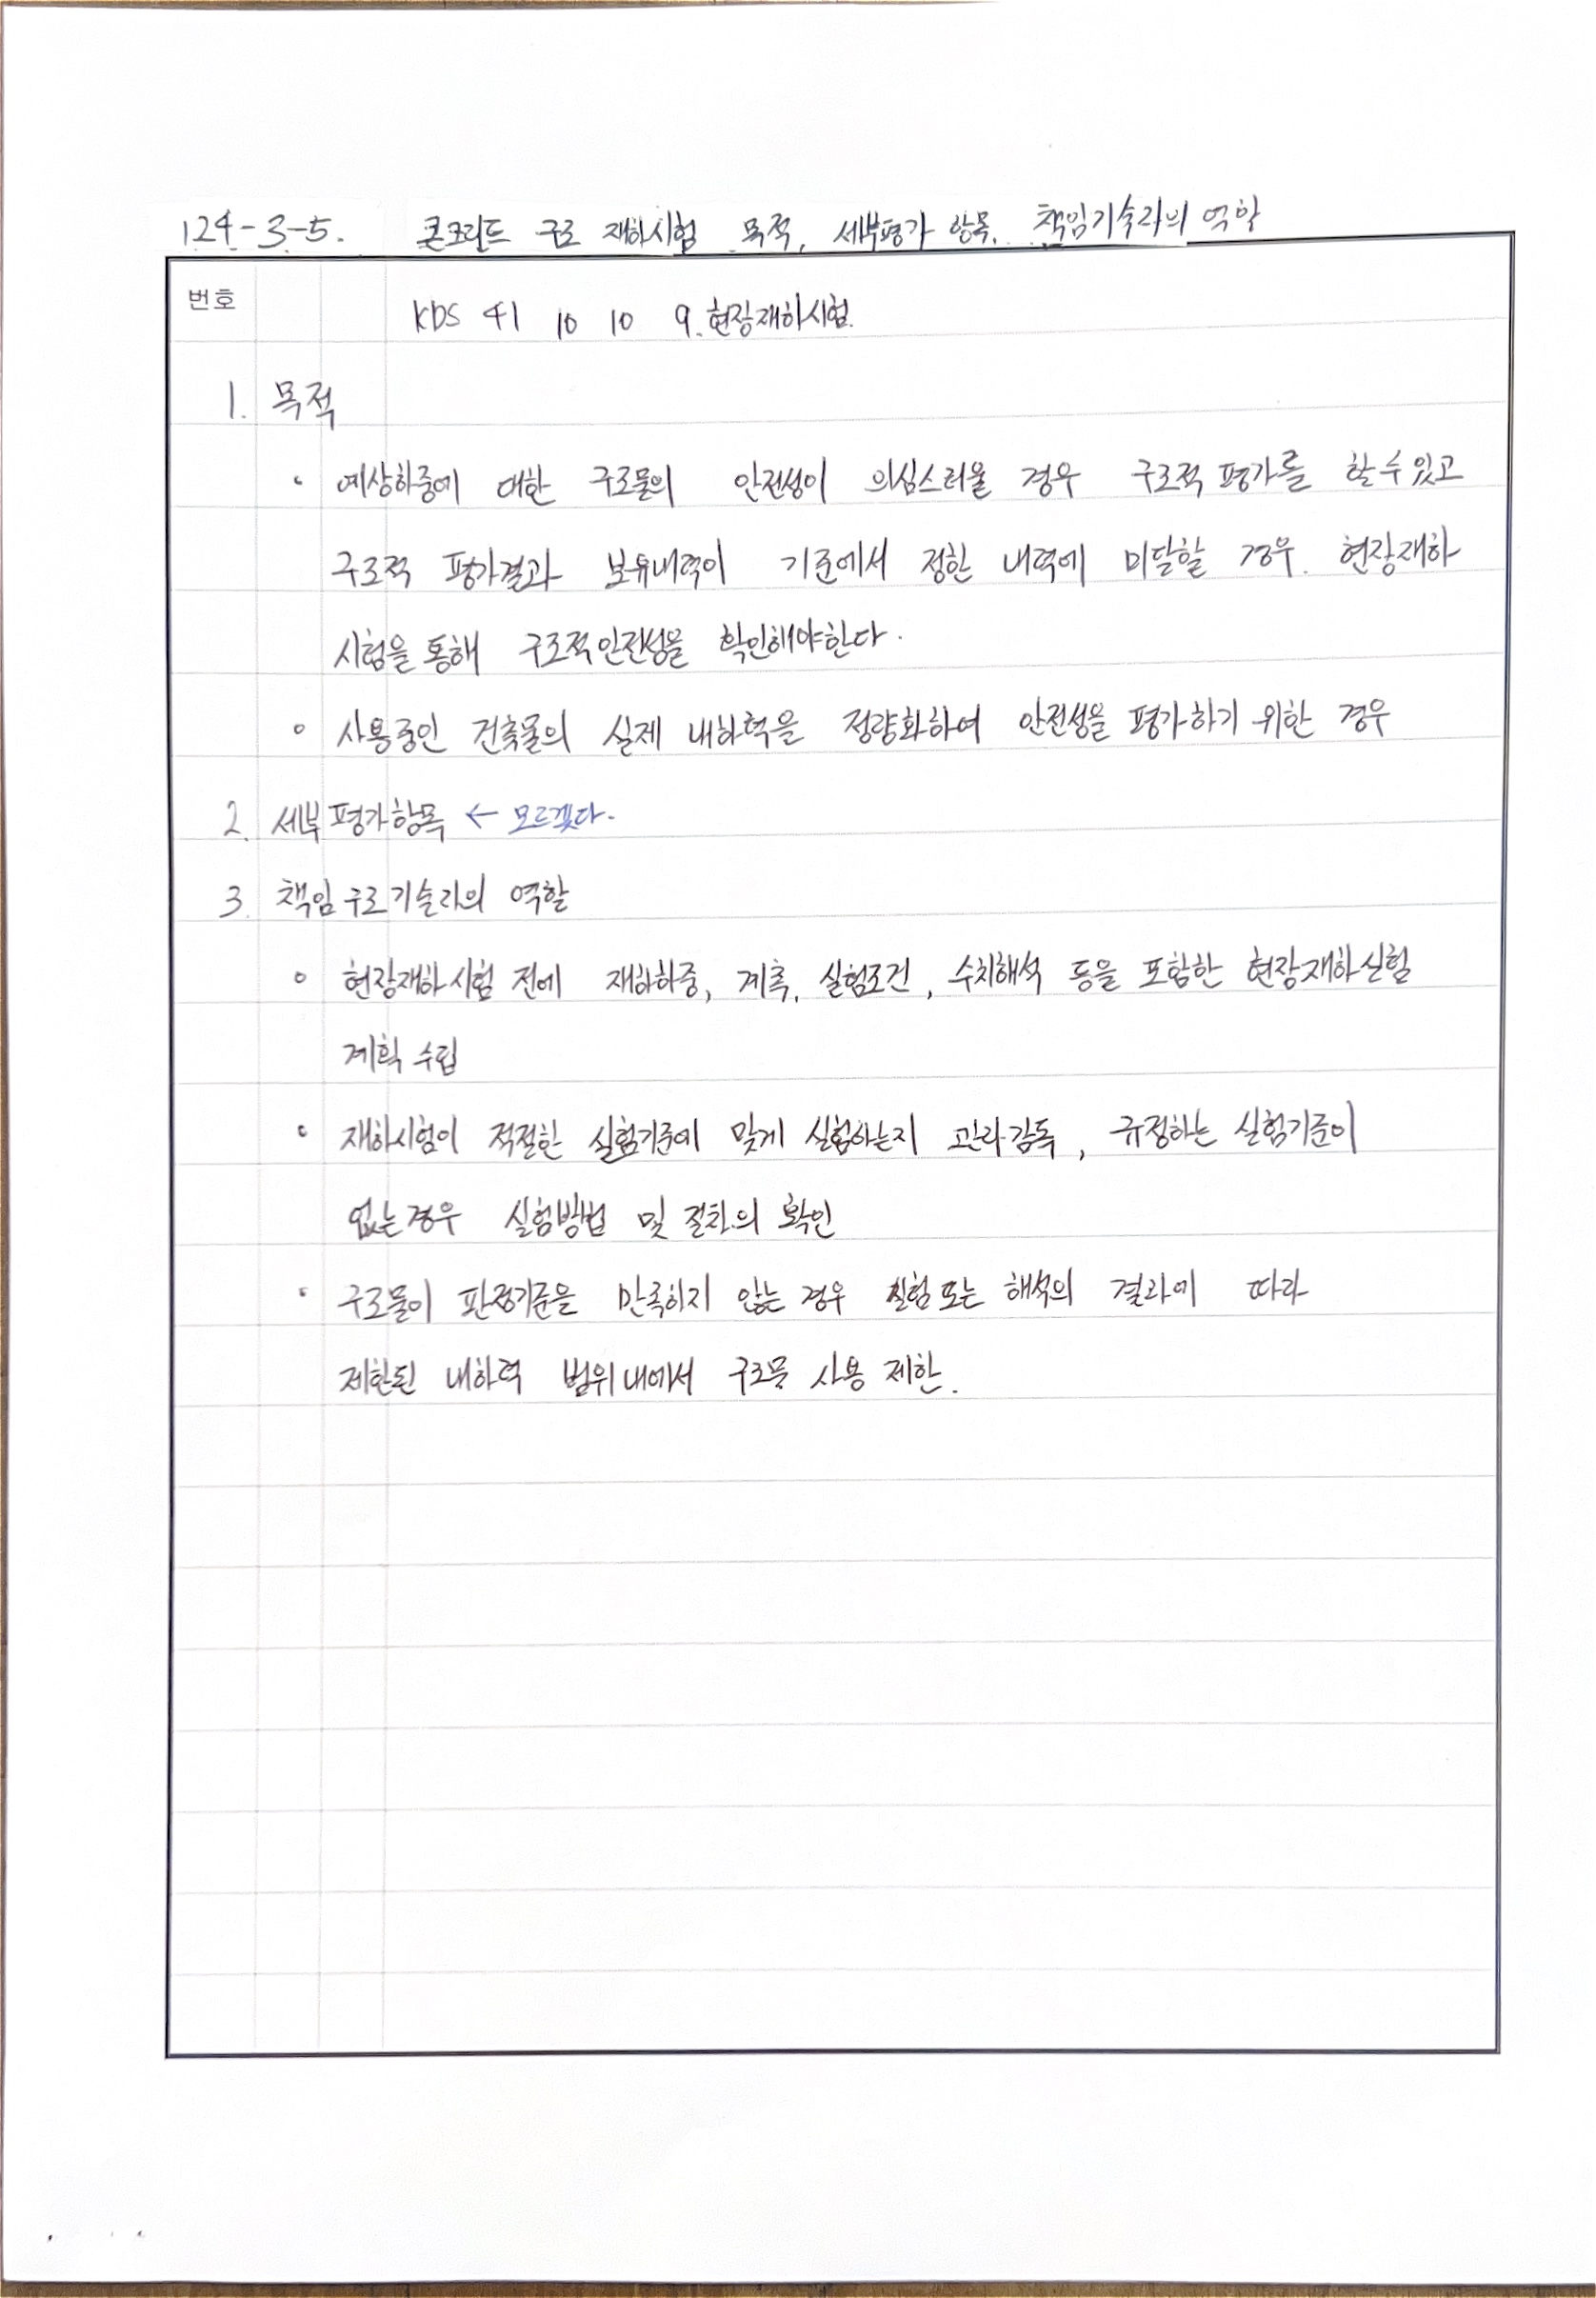 124-3-5. 콘크리트 구조 재하시험 목적, 세부평가 항목, 책임기술자의 역할
번호
KDS 41 10 10 9.현장재하시험.
1. 목적
◦ 예상하중에 대한 구조물의 안전성이 의심스러울 경우 구조적 평가를 할 수 있고
구조적 평가결과 보유내력이 기준에서 정한 내력에 미달할 경우. 현장재하
시험을 통해 구조적안전성을 확인해야한다.
◦ 사용중인 건축물의 실제 내하력을 정량화하여 안전성을 평가하기 위한 경우
2. 세부 평가항목 ← 모르겠다.
3. 책임 구조기술자의 역할
◦ 현장재하 시험 전에 재하하중, 계측, 실험조건, 수치해석 등을 포함한 현장재하실험
계획 수립
◦ 재하시험이 적절한 실험기준에 맞게 실험하는지 관리감독, 규정하는 실험기준이
없는경우 실험방법 및 절차의 확인
◦ 구조물이 판정기준을 만족하지 않는 경우 실험 또는 해석의 결과에 따라
제한된 내하력 범위내에서 구조물 사용 제한.